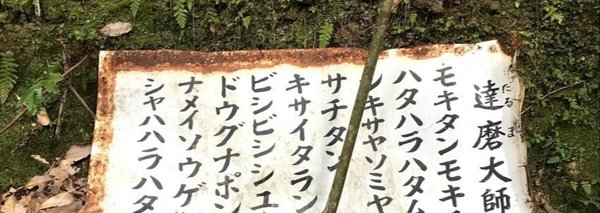 達磨大師
だるま
モキタンモキ
ハタハラハタム
キサヤソミヤ
サチタン
キサイタラン
ビシビシシエ
ドウグナポン
ナメイソウゲ
シャハハラハタ